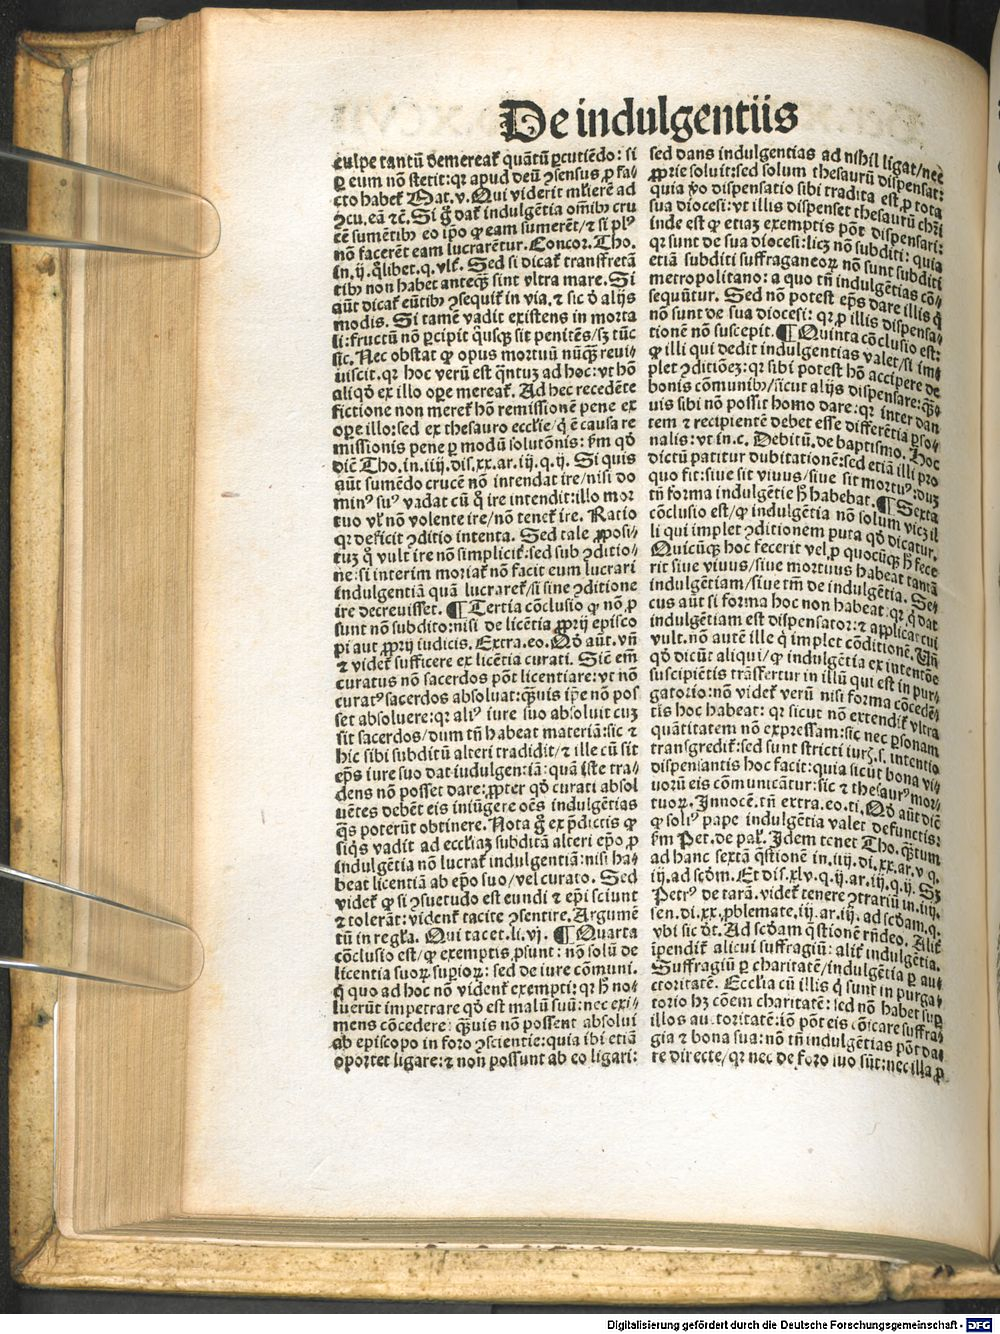 De indulgentiis
culpe tantū demereat̄ quātū ꝑcutiēdo: si
ꝑ eum nō stetit: qꝛ apud deū ꝯsensus ꝓ fa⸗
cto habet̄ Mat. v. Qui viderit mꝉierē ad
ꝯcu. eā ⁊c̄. Si g̊ dat̄ indulgētia oīnibꝫ cru
cē sumētibꝫ eo ip̄o ꝙ eam sumerēt/⁊ si plꝰ
nō facerēt eam lucrarētur. Concor. Tho.
in. ij. q̄libet. q. vlt̄. Sed si dicat̄ transfretā
tibꝫ non habet anteq̄ꝫ sint vltra mare. Si
aūt dicat̄ eūtibꝫ ꝯsequit̄ in via. ⁊ sic ď alijs
modis. Si tamē vadit existens in morta
li: fructū nō ꝑcipit q̊usqꝫ sit penitēs/sꝫ tūc
sic. Nec obstat ꝙ opus mortuū nūq̄ꝫ reui⸗
uiscit. qꝛ hoc verū est q̄ntuꝫ ad hoc: vt hō
aliqď ex illo oꝑe mereat̄. Ad hec recedēte
fictione non meret̄ hō remissionē pene ex
oꝑe illo: sed ex thesauro eccꝉie/q̄ ē causa re
missionis pene ꝑ modū solutōnis: ẜm qď
dic̄ Tho. in. iiij. dis. xx. ar. iij. q. ij. Si quis
aūt sumēdo crucē nō intendat ire/nisi do
minꝰ suꝰ vadat cū q̊ ire intendit: illo mor
tuo vꝉ nō volente ire/nō tenet̄ ire. Ratio
qꝛ deficit ꝯditio intenta. Sed tale ꝓposi⸗
tuꝫ q̊ vult ire nō simplicit̄: sed sub ꝯditio⸗
ne: si interim moriat̄ nō facit eum lucrari
indulgentiā quā lucraret̄/si sine ꝯditione
ire decreuisset. ¶ Tertia cōclusio ꝙ nō ꝓ
sunt nō subdito: nisi de licētia ꝓprij episco
pi aut ꝓprij iudicis. Extra. eo. Qď aūt. vñ
⁊ videt̄ sufficere ex licētia curati. Sic̄ em̄
curatus nō sacerdos pōt licentiare: vt nō
curatꝰ sacerdos absoluat: q̄ꝫuis ip̄e nō pos
set absoluere: qꝛ aliꝰ iure suo absoluit cuꝫ
sit sacerdos/dum tn̄ habeat materiā: sic ⁊
hic sibi subditū alteri tradidit/⁊ ille cū sit
ep̄s iure suo dat indulgentiā: quā iste tra⸗
dens nō posset dare: ꝓpter qď curati absol
uētes debēt eis iniūgere oēs indulgētias
q̄s poterūt obtinere. Nota g̊ ex p̄dictis ꝙ
siq̊s vadit ad eccꝉiaꝫ subditā alteri ep̄o ꝓ
indulgētia nō lucrat̄ indulgentiā: nisi ha⸗
beat licentiā ab ep̄o suo/vel curato. Sed
videt̄ ꝙ si ꝯsuetudo est eundi ⁊ ep̄i sciunt
⁊ tolerāt: vident̄ tacite ꝯsentire. Argumē
tū in regꝉa. Qui tacet. li. vj. ¶ Quarta
cōclusio est/ꝙ exemptis ꝓsunt: nō solū de
licentia suoꝝ supioꝝ: sed de iure cōmuni.
q̊ quo ad hoc nō vident̄ exempti: qꝛ h̄ no⸗
luerūt impetrare qď est malū suū: nec exi⸗
mens cōcedere: q̄ꝫuis nō possent absolui
ab episcopo in foro ꝯscientie: quia ibi etiā
oportet ligare: ⁊ non possunt ab eo ligari:
sed dans indulgentias ad nihil ligat/nec
ꝓprie soluit: sed solum thesaurū dispensat:
quia ꝟo dispensatio sibi tradita est ꝓ tota
sua diocesi: vt illis dispenset thesaurū chr̄i
inde est ꝙ etiaꝫ exemptis pōt dispensari:
qꝛ sunt de sua diocesi: licꝫ nō subditi: quia
etiā subditi suffraganeoꝝ nō sunt subditi
metropolitano: a quo tn̄ indulgētias cō⸗
sequūtur. Sed nō potest ep̄s dare illis q̊
nō sunt de sua diocesi: qꝛ ꝓ illis dispensa⸗
tionē nō suscepit. ¶ Quinta cōclusio est:
ꝙ illi qui dedit indulgentias valet/si im⸗
plet ꝯditiōeꝫ: qꝛ sibi potest hō accipere de
bonis cōmunibꝫ/sicut alijs dispensare: q̄ꝫ⸗
uis sibi nō possit homo dare: qꝛ inter dan
tem ⁊ recipientē debet esse differētia ꝑso⸗
nalis: vt in. c. Debitū. de baptismo. Hoc
dictū patitur dubitationē: sed etiā illi pro
quo fit: siue sit viuus/siue sit mortuꝰ: duꝫ
tn̄ forma indulgētie h̄ habebat. ¶ Sexta
cōclusio est/ꝙ indulgētia nō solum vicꝫ il
li qui implet ꝯditionem puta qď dicatur.
Quicūqꝫ hoc fecerit vel ꝓ quocūqꝫ h̄ fece
rit siue viuus/siue mortuus habeat tantā
indulgētiam/siue tm̄ de indulgētia. Se⸗
cus aūt si forma hoc non habeat: qꝛ q̊ dat
indulgētiam est dispensator: ⁊ applicat cui
vult. nō autē ille q̊ implet cōditionē. Vñ
qď dicūt aliqui/ꝙ indulgētia ex intentōe
suscipiētis trāsfertur in illū qui est in pur⸗
gatorio: nō videt̄ verū nisi forma cōcedē⸗
tis hoc habeat: qꝛ sicut nō extendit̄ vltra
quātitatem nō expressam: sic nec ꝑsonam
transgredit̄: sed sunt stricti iurꝭ. s. intentio
dispensantis hoc facit: quia sicut bona vi⸗
uorū eis cōmunicātur: sic ⁊ thesaurꝰ mor⸗
tuoꝝ. Innocē. tn̄ extra. eo. ti. Qď aūt dic̄
ꝙ soliꝰ pape indulgētia valet defunctis:
ẜm Pet. de pal̄. Idem tenet Tho. q̄ꝫtum
ad hanc sextā q̄stionē in. iiij. di. xx. ar. v q.
iij. ad scďm. Et dis. xlv. q. ij. ar. iij. q. ij. Sꝫ
Petrꝰ de tarā. videt̄ tenere ꝯtrariū in. iiij.
sen. di. xx. ꝓblemate. iij. ar. iij. ad scďam. q.
vbi sic ďt. Ad scďam q̄stionē rn̄deo. Alit̄
īpendit̄ alicui suffragiū: alit̄ indulgētia.
Suffragiū ꝑ charitatē/indulgētia ꝑ au⸗
ctoritatē. Eccꝉia cū illis q̊ sunt in purga⸗
torio hꝫ cōem charitatē: sed nō habet sup̄
illos auctoritatē: iō pōt eis cōicare suffra⸗
gia ⁊ bona sua: nō tn̄ indulgētias pōt da⸗
re directe/qꝛ nec de foro suo sūt: nec illa ꝓ
Digitalisierung gefördert durch die Deutsche Forschungsgemeinschaft - DFG